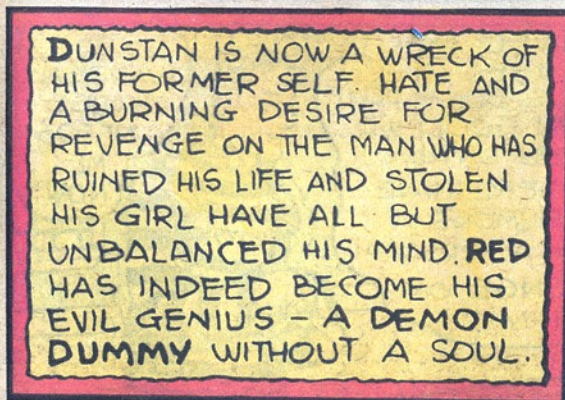 DUNSTAN IS NOW A WRECK OF
HIS FORMER SELF. HATE AND
A BURNING DESIRE FOR
REVENGE ON THE MAN WHO HAS
RUINED HIS LIFE AND STOLEN
HIS GIRL HAVE ALL BUT
UNBALANCED HIS MIND. RED
HAS INDEED BECOME HIS
EVIL GENIUS – A DEMON
DUMMY WITHOUT A SOUL.